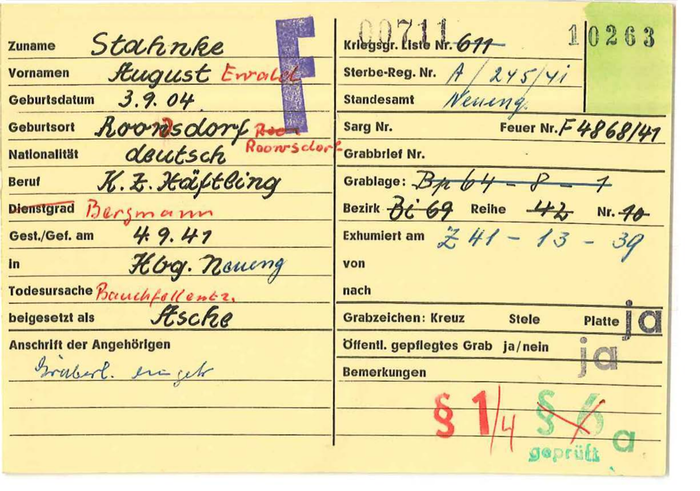 Zuname Stahnke
Vornamen August Ewald
Geburtsdatum 3.9.04.
Geburtsort Roonsdorf
Roonsdorf
Nationalität deutsch
Beruf K. Z. Häftling
Dienstgrad Bergmann
Gest./Gef. am 4.9.41
in Hbg. Neueng
Todesursache Bauchfellentz.
beigesetzt als Asche
Anschrift der Angehörigen
F
00711 10263
Kriegsgr. Liste Nr. 611
Sterbe-Reg. Nr. A / 245/41
Standesamt Neueng.
Sarg Nr. Feuer Nr. F 4868/41
Grabbrief Nr.
Grablage: Bp 64 - 8 - 1
Bezirk Bi 69 Reihe 42 Nr. 10
Exhumiert am Z 41 - 13 - 39
von
nach
Grabzeichen: Kreuz Stele Platte ja
Öffentl. gepflegtes Grab ja/nein ja
Bemerkungen
§ 1/4 § 6 a
geprüft